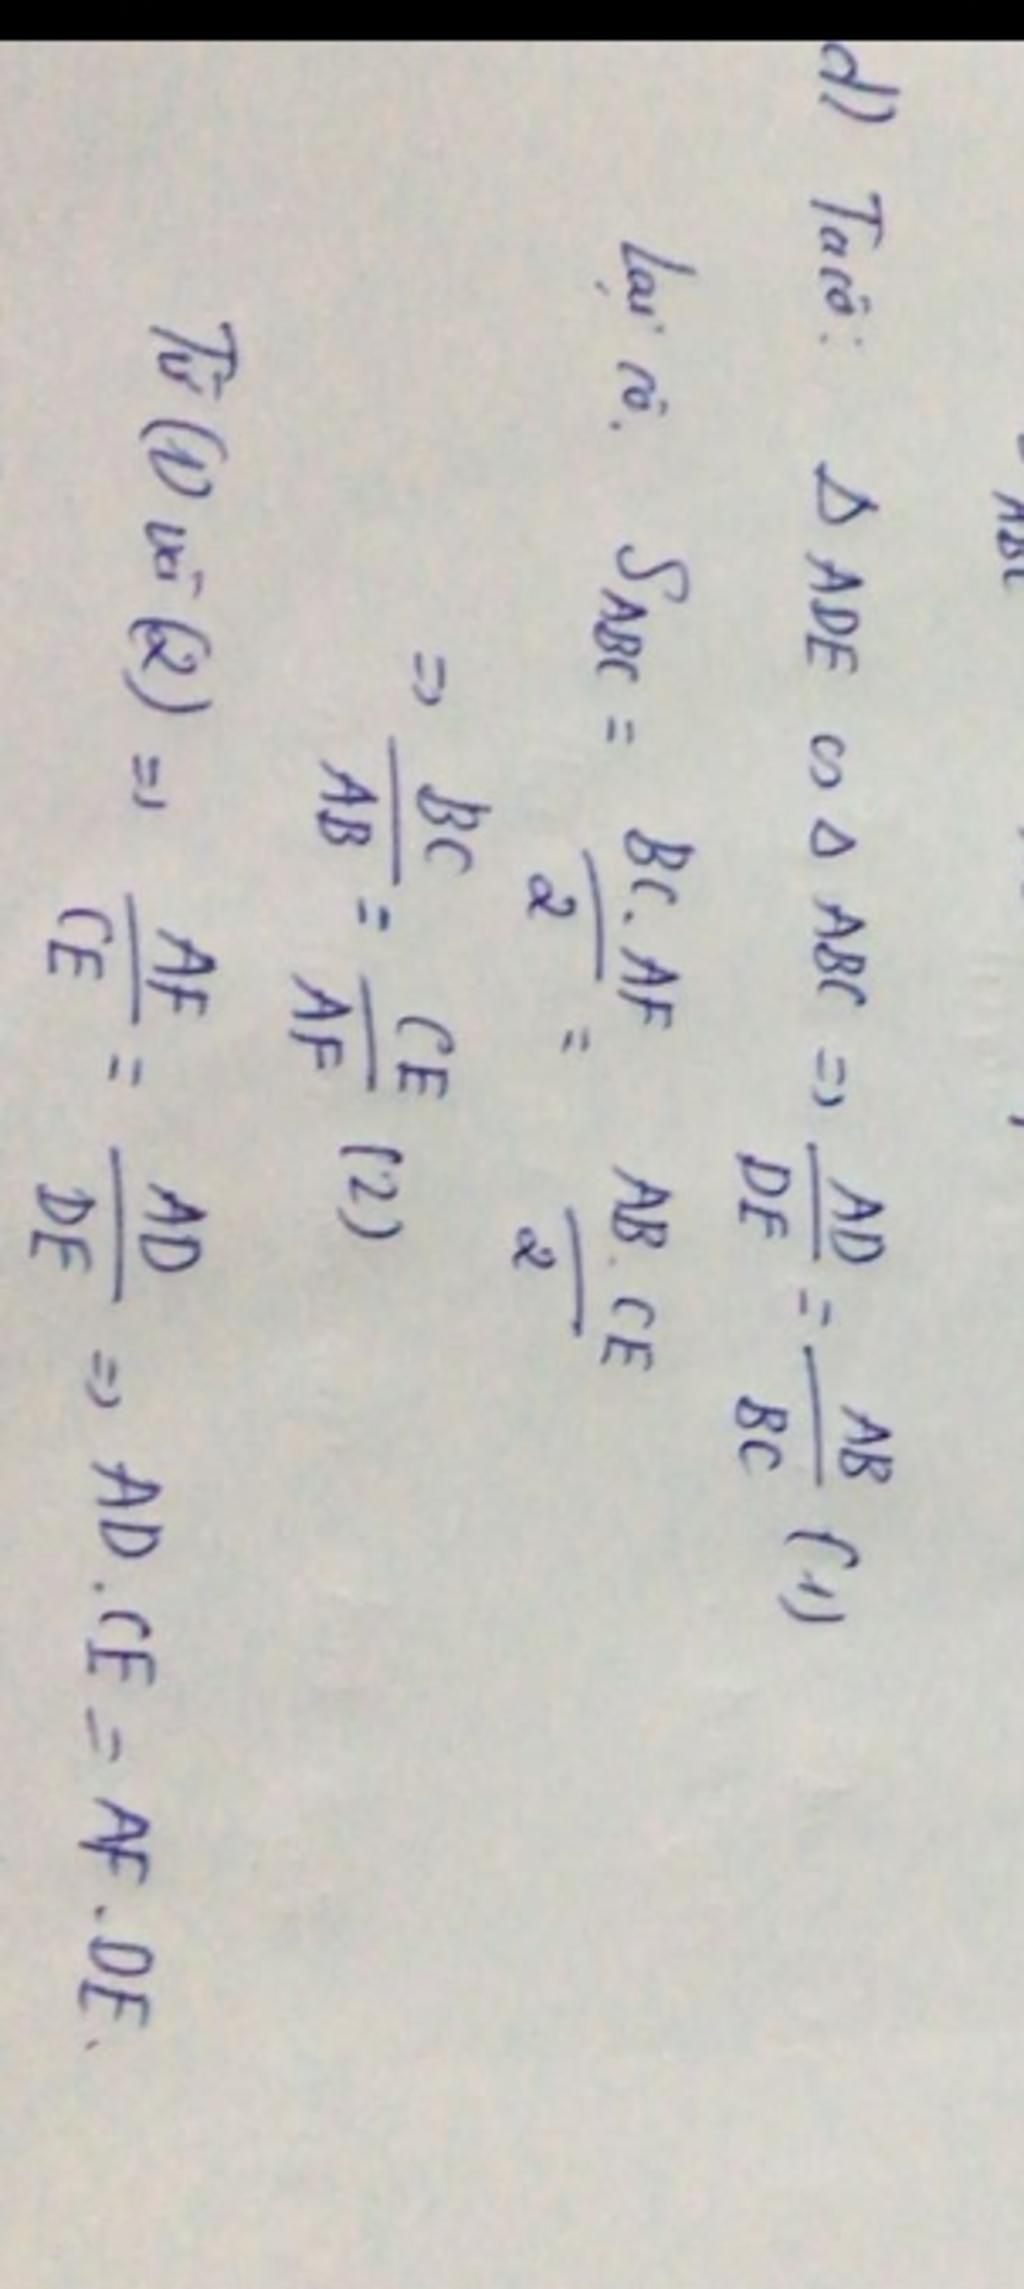 ABC
d) Ta có: Δ ADE ∽ Δ ABC => AD/DE = AB/BC (1)
Lại có. S_ABC = BC.AF/2 = AB.CE/2
=> BC/AB = CE/AF (2)
Từ (1) và (2) => AF/CE = AD/DE => AD.CE = AF.DE.